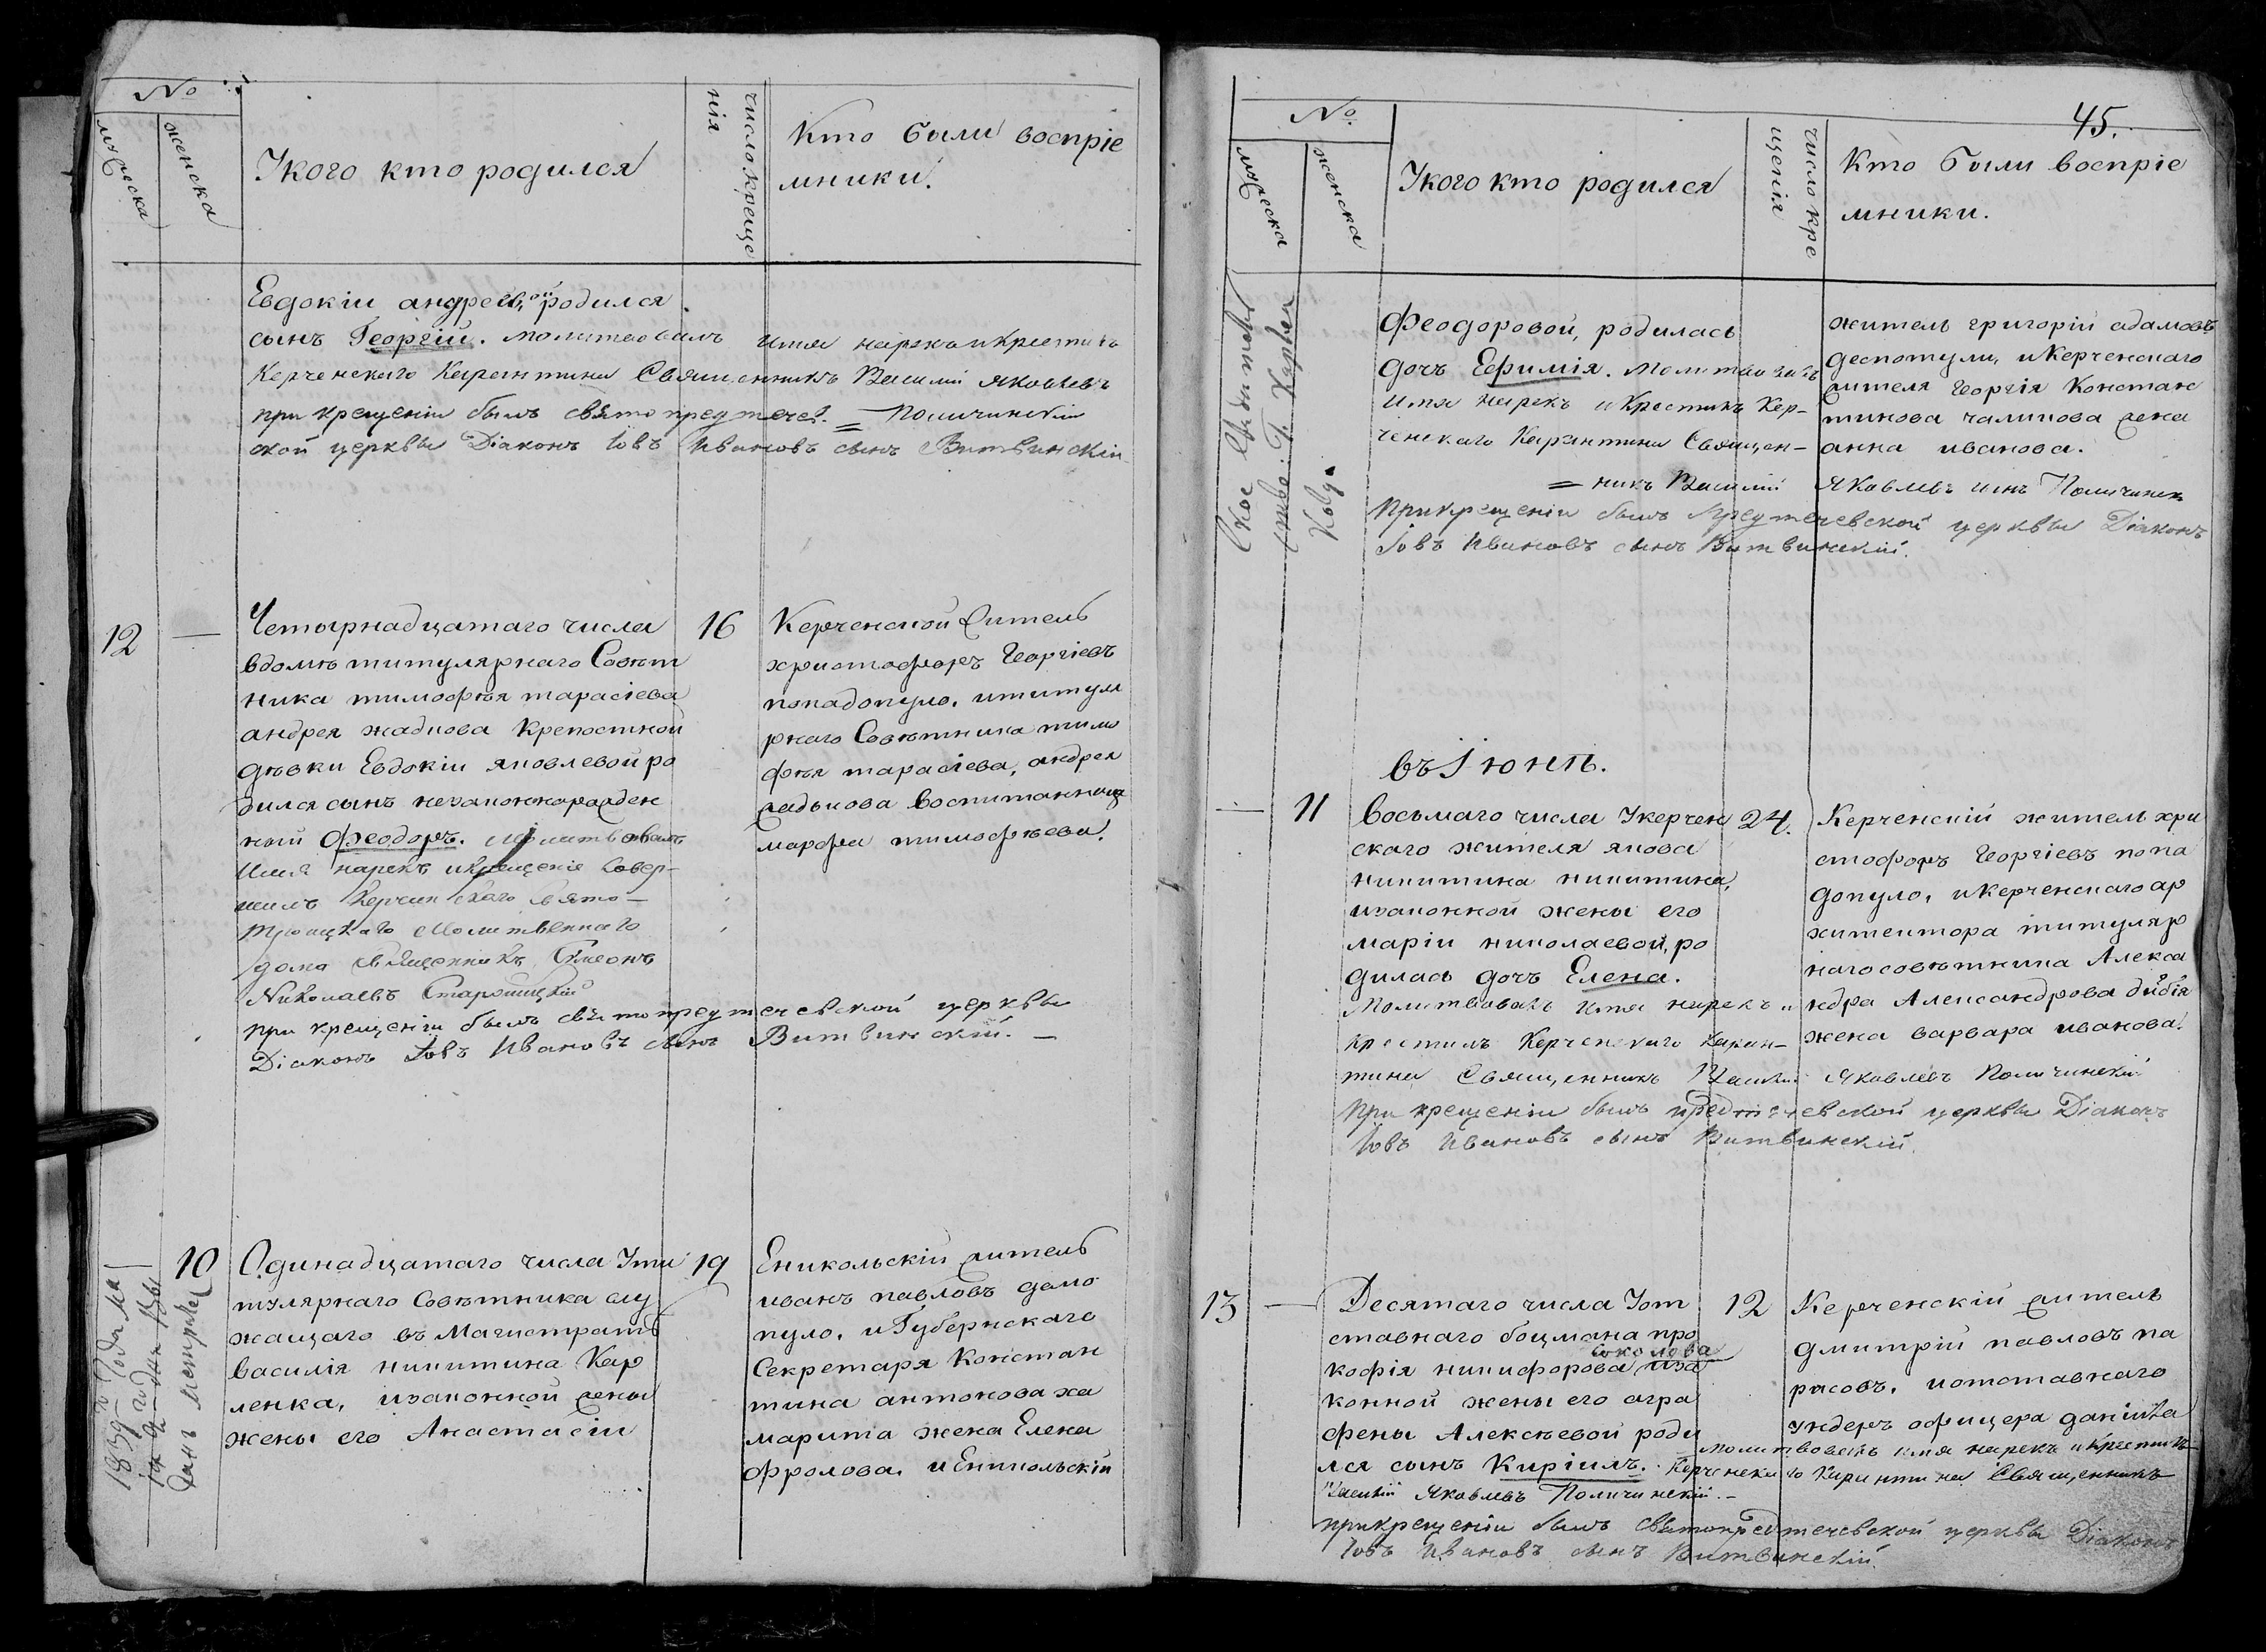 №
мужеска
женска
Укого кто родился
число креще
нія
Кто были воспріе
мники.
Евдокіи андреевой, родился
сынъ Георгій. молитвовалъ имя нарекъ и крестилъ
Керченскаго Карантина Священникъ Василій Яковлевъ
при крещеніи былъ свято предтечев. = Поличинскій
ской церквы Діаконъ Іовъ Ивановъ сынъ Витвинскій
12
—
Четырнадцатаго числа
вдомѣ титулярнаго Совѣт
ника тимофѣя тарасіева
андрея жадкова крепостной
дѣвки Евдокіи яковлевой ро
дился сынъ незаконнорожден
ный Феодоръ. Молитвовалъ
имя нарекъ и крещеніе совер-
шилъ Керчинскаго Свято-
троицкаго Молитвеннаго
дома Священникъ Симеонъ
Николаевъ
при крещеніи былъ свято предтечевской церквы
Діаконъ Іовъ Ивановъ сынъ Витвинскій. —
16
Керченской житель
христофоръ Георгіевъ
попадопуло, ититуля
рнаго Совѣтника тимо
фѣя тарасіева, андрея
жадькова воспитанница
марфа тимофѣева.
1839 Года Ма
данъ метрика
10
Одинадцатаго числа Ути
тулярнаго Совѣтника слу
жащаго въ Магистратѣ
василія никитина Кар
ленка, изаконной жены
жены его Анастасіи
19
Еникольскій житель
иванъ павловъ дамо
пуло, и Губернскаго
Секретаря Констан
тина антонова ха
марита жена Елена
фролова. и Еникольскій
45.
№.
мужеска
женска
Укого кто родился
число кре
щенія
Кто были воспріе
мники.
Феодоровой, родилась
дочъ Ефимія. Молитвовалъ
имя нарекъ и крестилъ Кер-
ченскаго Карантина Священ-
= никъ Василій Яковлевъ сынъ Поличинск
При крещеніи былъ Предтечевской церквы Діаконъ
Іовъ Ивановъ сынъ Витвинскій.
житель григорій адамовъ
деспотули, и Керченскаго
жителя Георгія Констан
тинова чалихова жена
анна иванова.
въ Іюнѣ.
—
11
Восьмаго числа Укерчен
скаго жителя якова
никитина никитина,
изаконной жены его
маріи николаевой, ро
дилась дочъ Елена.
Молитвовалъ имя нарекъ и
крестилъ Керченскаго Каран-
тина Священникъ Василій Яковлевъ Поличинскій
При крещеніи былъ предтечевской церквы Діаконъ
Іовъ Ивановъ сынъ Витвинскій.
24.
Керченскій житель хри
стофоръ Георгіевъ попа
допуло, и керченскаго ар
хитектора титуляр
наго совѣтника Алекса
ндра Александрова дибія
жена варвара иванова.
13
—
Десятаго числа Уот
ставнаго боцмана про
кофія никифорова Соколова иза
конной жены его агра
фены Алексѣевой роди
лся сынъ Кирілъ.
молитвовалъ имя нарекъ и крестилъ
Керченскаго Карантина Священникъ
Василій Яковлевъ Поличинскій. —
при крещеніи былъ Святопредтечевской церквы Діаконъ
Іовъ Ивановъ сынъ Витвинскій
12
Керченскій житель
дмитрій павловъ па
расовъ, иотставнаго
ундеръ офицера